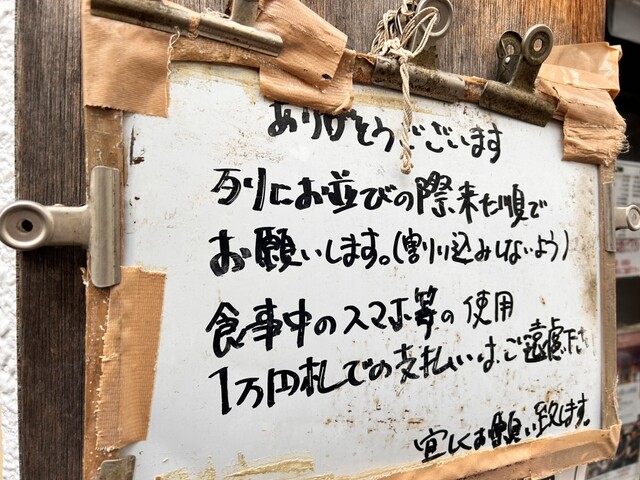 ありがとうございます
列にお並びの際来た順で
お願いします。(割り込みしないよう)
食事中のスマホ等の使用
1万円札での支払いは、ご遠慮下さ
宜しくお願い致します。